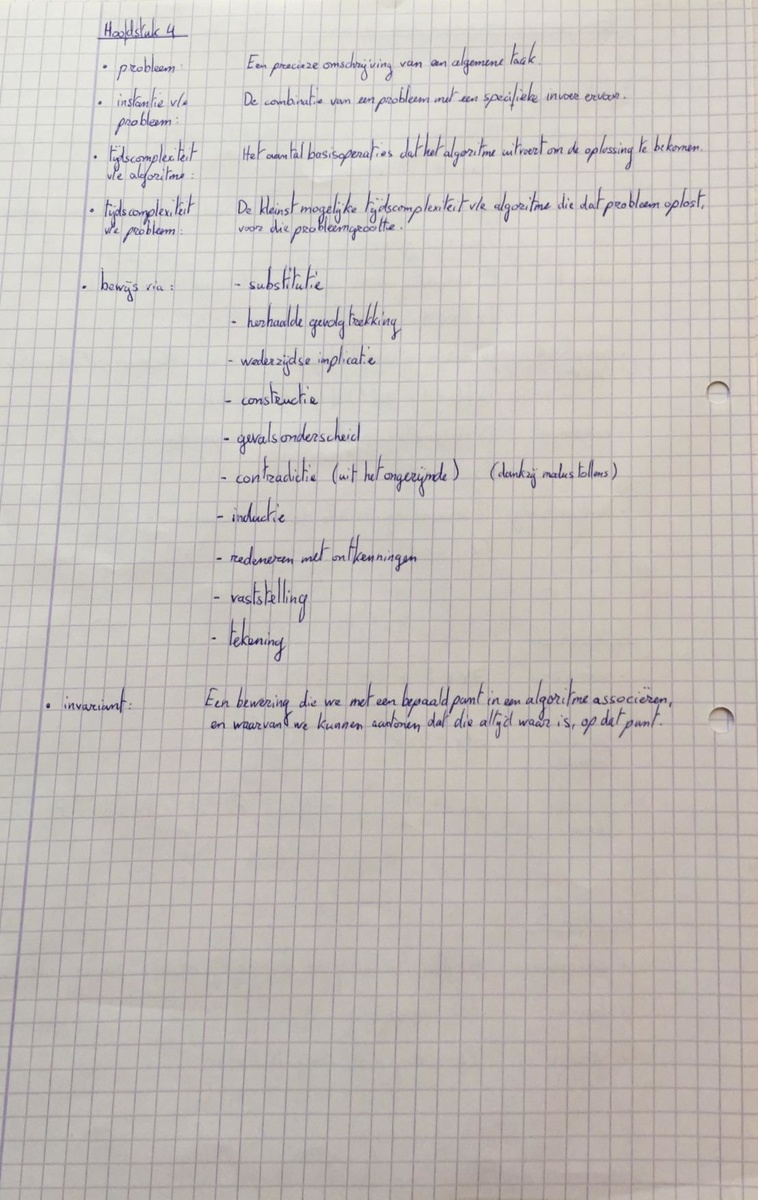 Hoofdstuk 4
• probleem: Een precieze omschrijving van een algemene taak.
• instantie v/e De combinatie van een probleem met een specifieke invoer ervoor.
probleem:
• tijdscomplexiteit Het aantal basisoperaties dat het algoritme uitvoert om de oplossing te bekomen.
v/e algoritme:
• tijdscomplexiteit De kleinst mogelijke tijdscomplexiteit v/e algoritme die dat probleem oplost,
v/e probleem: voor die probleemgrootte.
• bewijs via: - substitutie
- herhaalde gevolgtrekking
- wederzijdse implicatie
- constructie
- gevalsonderscheid
- contradictie (uit het ongerijmde) (dankzij modus tollens)
- inductie
- redeneren met ontkenningen
- vaststelling
- tekening
• invariant: Een bewering die we met een bepaald punt in een algoritme associëren,
en waarvan we kunnen aantonen dat die altijd waar is, op dat punt.